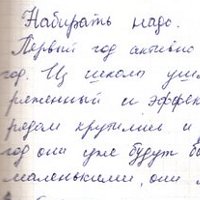 Набирать надо.
Первый год активно
год. Из школы уш
ряженный и эффек
рядом крутились и
год они уже будут б
маленькими, они